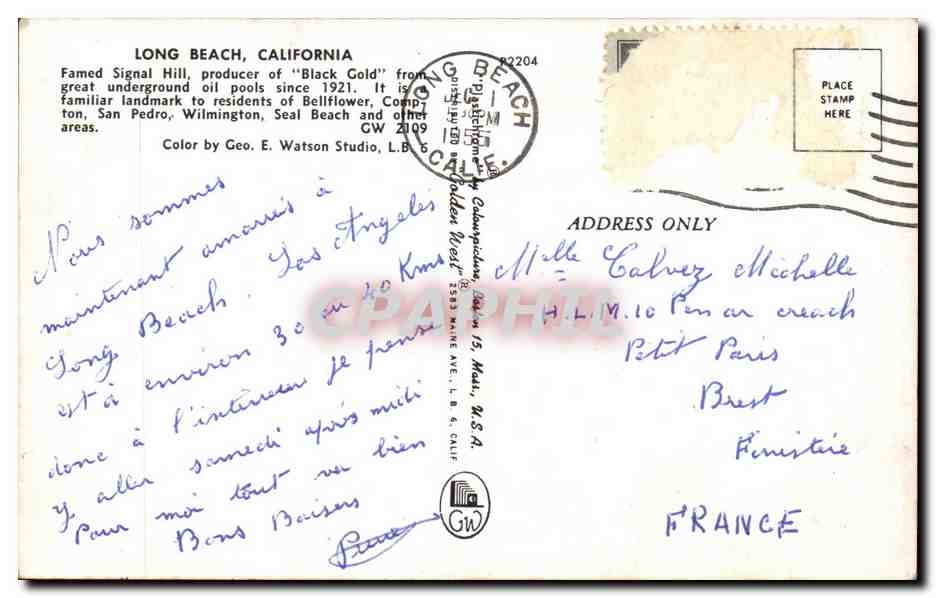 LONG BEACH, CALIFORNIA
Famed Signal Hill, producer of "Black Gold" from
great underground oil pools since 1921. It is a
familiar landmark to residents of Bellflower, Comp-
ton, San Pedro, Wilmington, Seal Beach and other
areas. GW 2109
Color by Geo. E. Watson Studio, L.B. 6
Nous sommes
maintenant amarrés à
Long Beach. Los Angeles
est à environ 30 ou 40 Kms
donc à l'intérieur je pense
y aller samedi après midi
Pour moi tout va bien
Bons Baisers
P2204
LONG BEACH
CALIF.
"Plastichrome" by Colourpicture, Boston 15, Mass., U.S.A.
DISTRIBUTED BY "Golden West" ® 2583 MAINE AVE., L. B. 6, CALIF
GW
PLACE
STAMP
HERE
ADDRESS ONLY
Mlle Calvez Michelle
H.L.M. 10 Pen ar creach
Petit Paris
Brest
Finistère
FRANCE
CPAPHIL